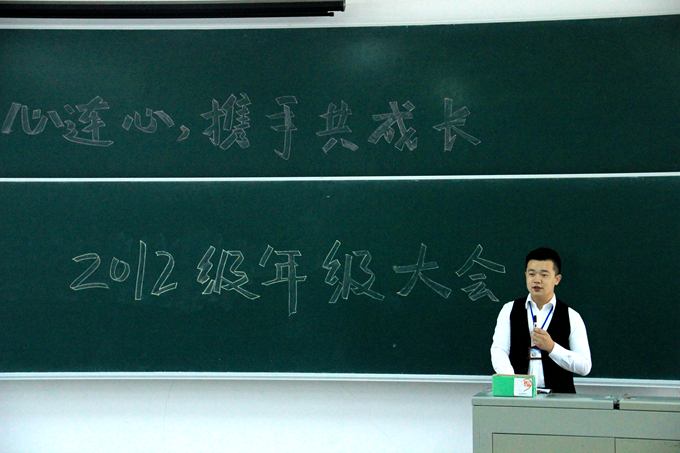 心连心，携手共成长
2012级年级大会